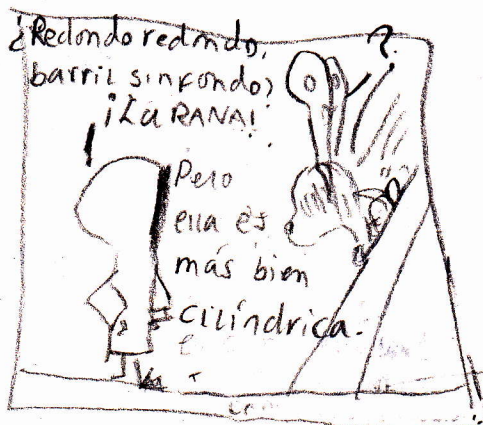 ¿Redondo redondo,
barril sin fondo?
¡La RANA!
?
Pero
ella es
más bien
cilíndrica.